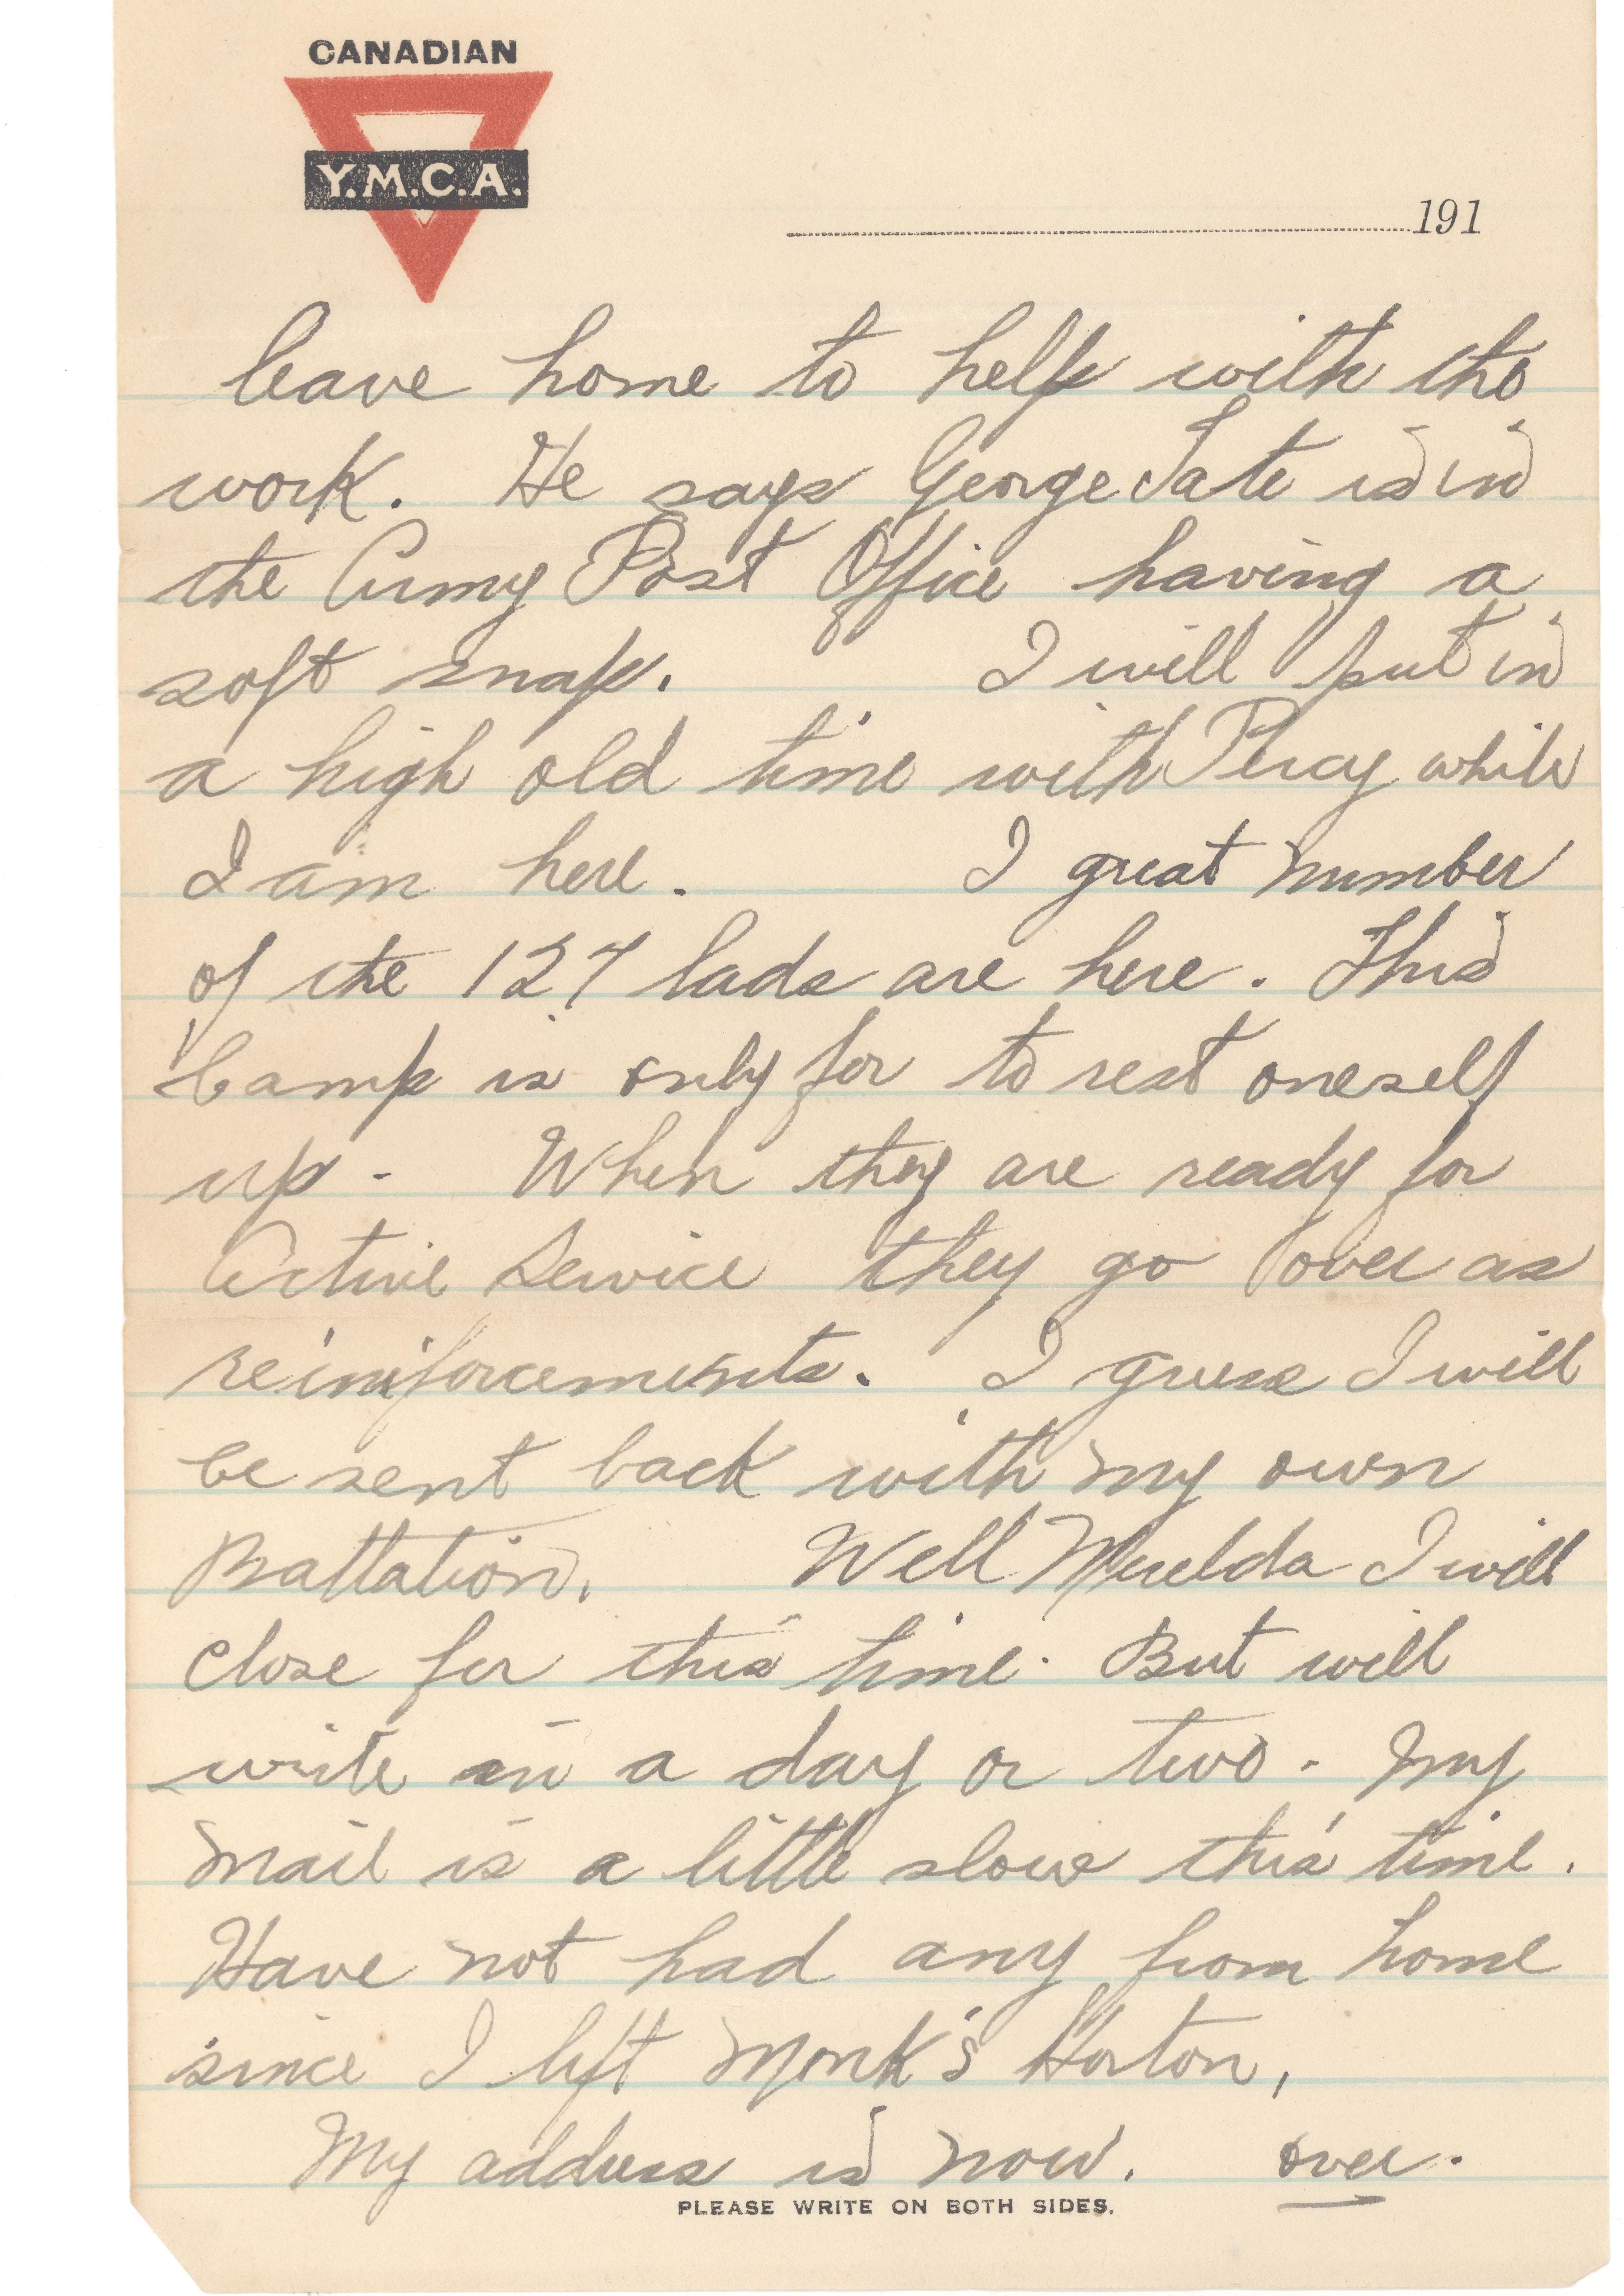 CANADIAN
Y.M.C.A.
191
leave home to help with the
work. He says George Tate is in
the Army Post Office having a
soft snap. I will put in
a high old time with Percy while
I am here. I great number
of the 127 lads are here. This
Camp is only for to rest oneself
up - When they are ready for
Active Service they go over as
reiniforcements. I guess I will
be sent back with my own
Battation. Well I will
close for this time. But will
write in a day or two. My
mail is a little slow this time.
Have not had any from home
since I left Monk's Horton,
My address is now. over.
PLEASE WRITE ON BOTH SIDES.